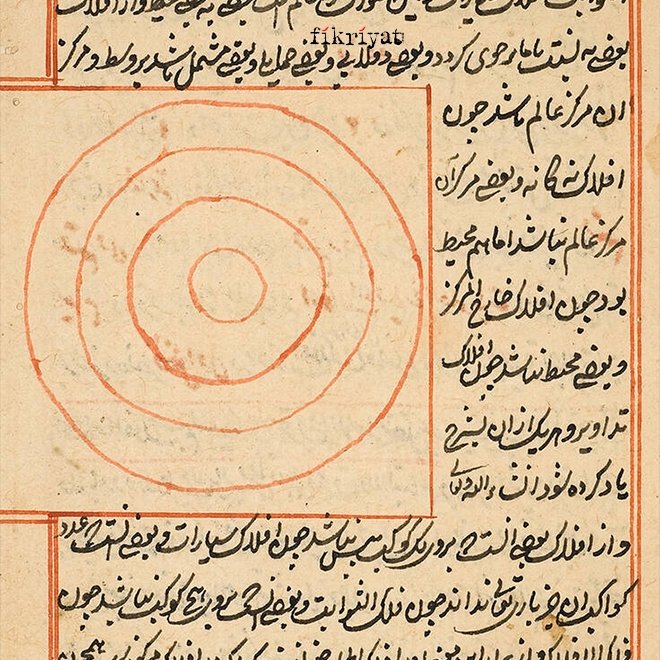 .fikriyat
بعضی به نسبت با ما رحوی کردد و بعضی دولابی و بعضی حمایلی و بعضی مشتمل باشد بر وسط و مرکز
ان مرکز عالم باشد جون
افلاک نه کانه و بعضی مرکز آن
مرکز عالم نباشد اما هم محیط
بود جون افلاک خارج المرکز
و بعضی محیط نباشد جون افلاک
تداویر و هر یک از ان بشرح
یاد کرده شود انشاء الله تعالی
و از افلاک بعضی انست که برو یک کوکب بیش نباشد جون افلاک سیارات و بعضی انست که عدد
کواکب ان جز باری تعالی نداند جون فلک الثوابت و بعضی انست که برو هیچ کوکب نباشد جون